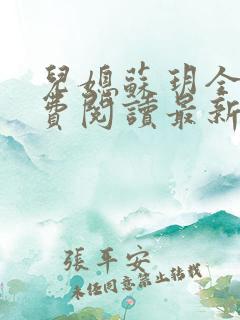 兒媳蘇玥全
費閱讀最新
張平安
未经同意禁止转载